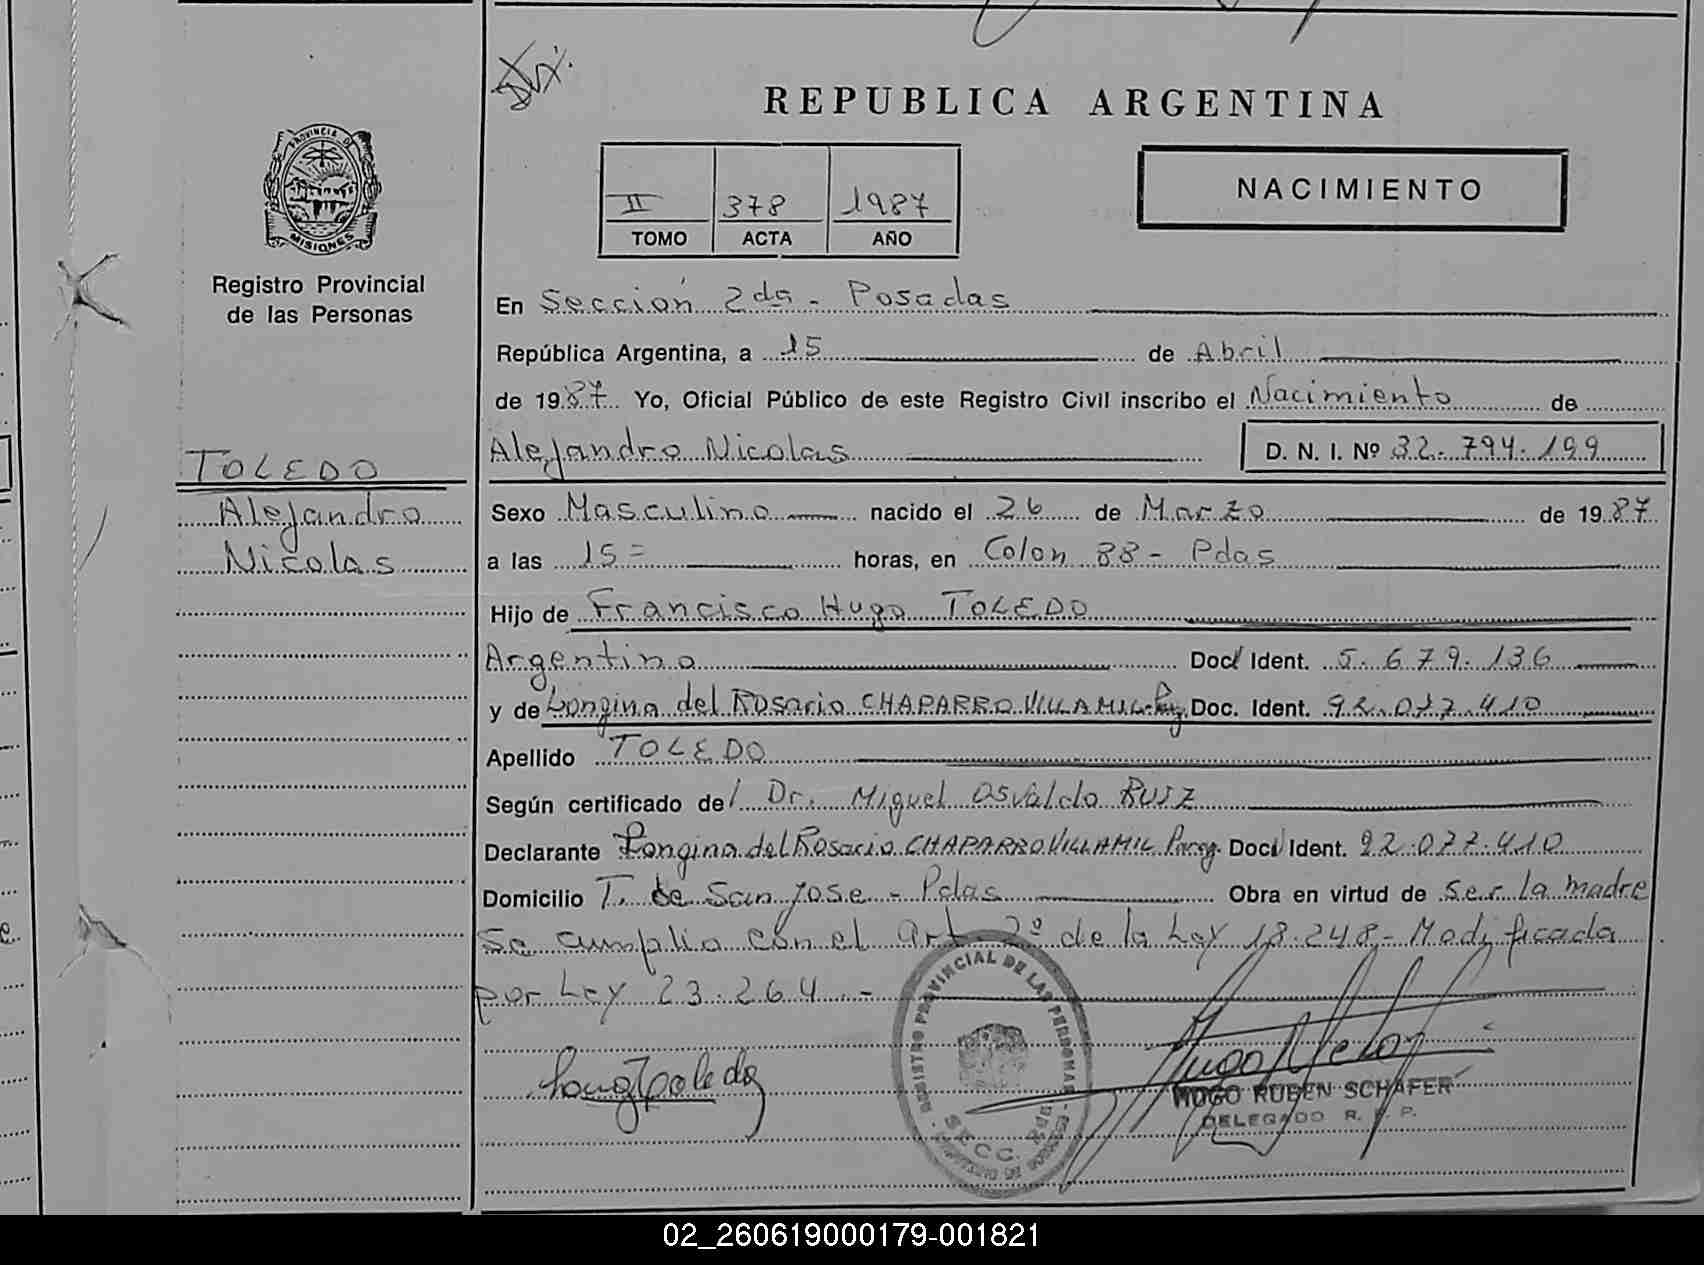 REPUBLICA ARGENTINA
PROVINCIA DE
MISIONES
Registro Provincial
de las Personas
II 378 1987
TOMO ACTA AÑO
NACIMIENTO
En Sección 2da - Posadas
República Argentina, a 15 de Abril
de 1987 Yo, Oficial Público de este Registro Civil inscribo el Nacimiento de
Alejandro Nicolas D. N. I. Nº 32.794.199
TOLEDO
Alejandro
Nicolas
Sexo Masculino nacido el 26 de Marzo de 1987
a las 15= horas, en Colon 88 - Pdas
Hijo de Francisco Hugo TOLEDO
Argentino Doc/ Ident. 5.679.136
y de Longina del Rosario CHAPARRO VILLAMIL-Pg. Doc. Ident. 92.077.410
Apellido TOLEDO
Según certificado de/ Dr. Miguel Osvaldo RUIZ
Declarante Longina del Rosario CHAPARRO VILLAMIL Parag. Doc/ Ident. 92.077.410
Domicilio T. de San Jose - Pdas Obra en virtud de ser la madre
Se cumplio con el art 2º de la Ley 18.248 - Modificada
por Ley 23.264 -
REGISTRO PROVINCIAL DE LAS PERSONAS
SECC.
HUGO RUBEN SCHAFER
DELEGADO R. P. P.
02_260619000179-001821